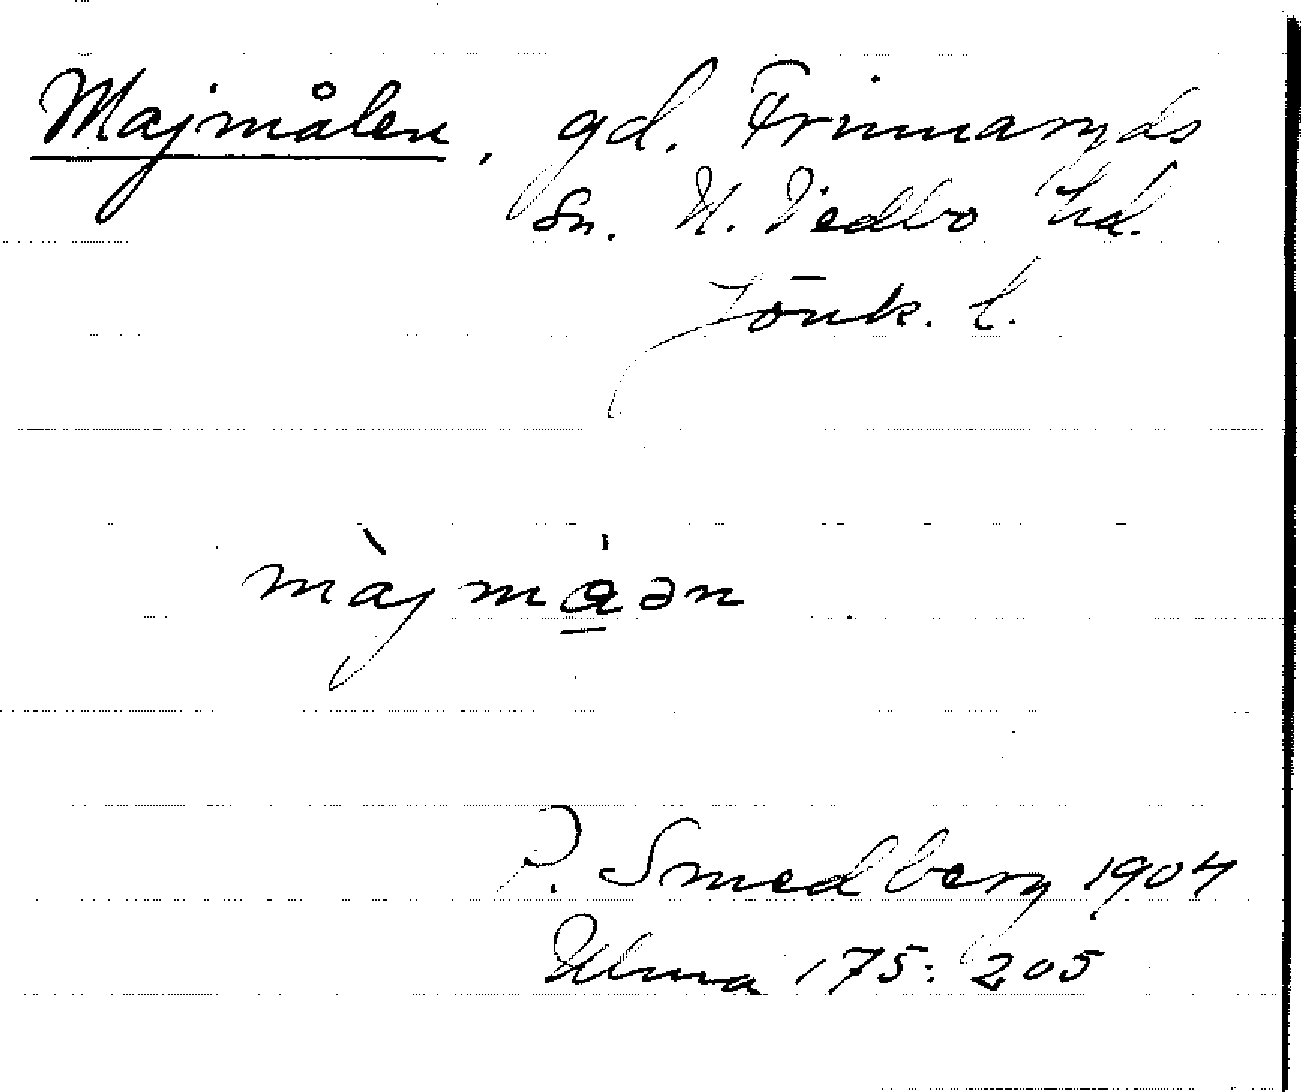 Majmålen, gd. Frinnaryds
sn. N. Vedbo hd.
Jönk. l.
màjmȧ̲ən
P. Smedberg 1904
Ulma 175: 205